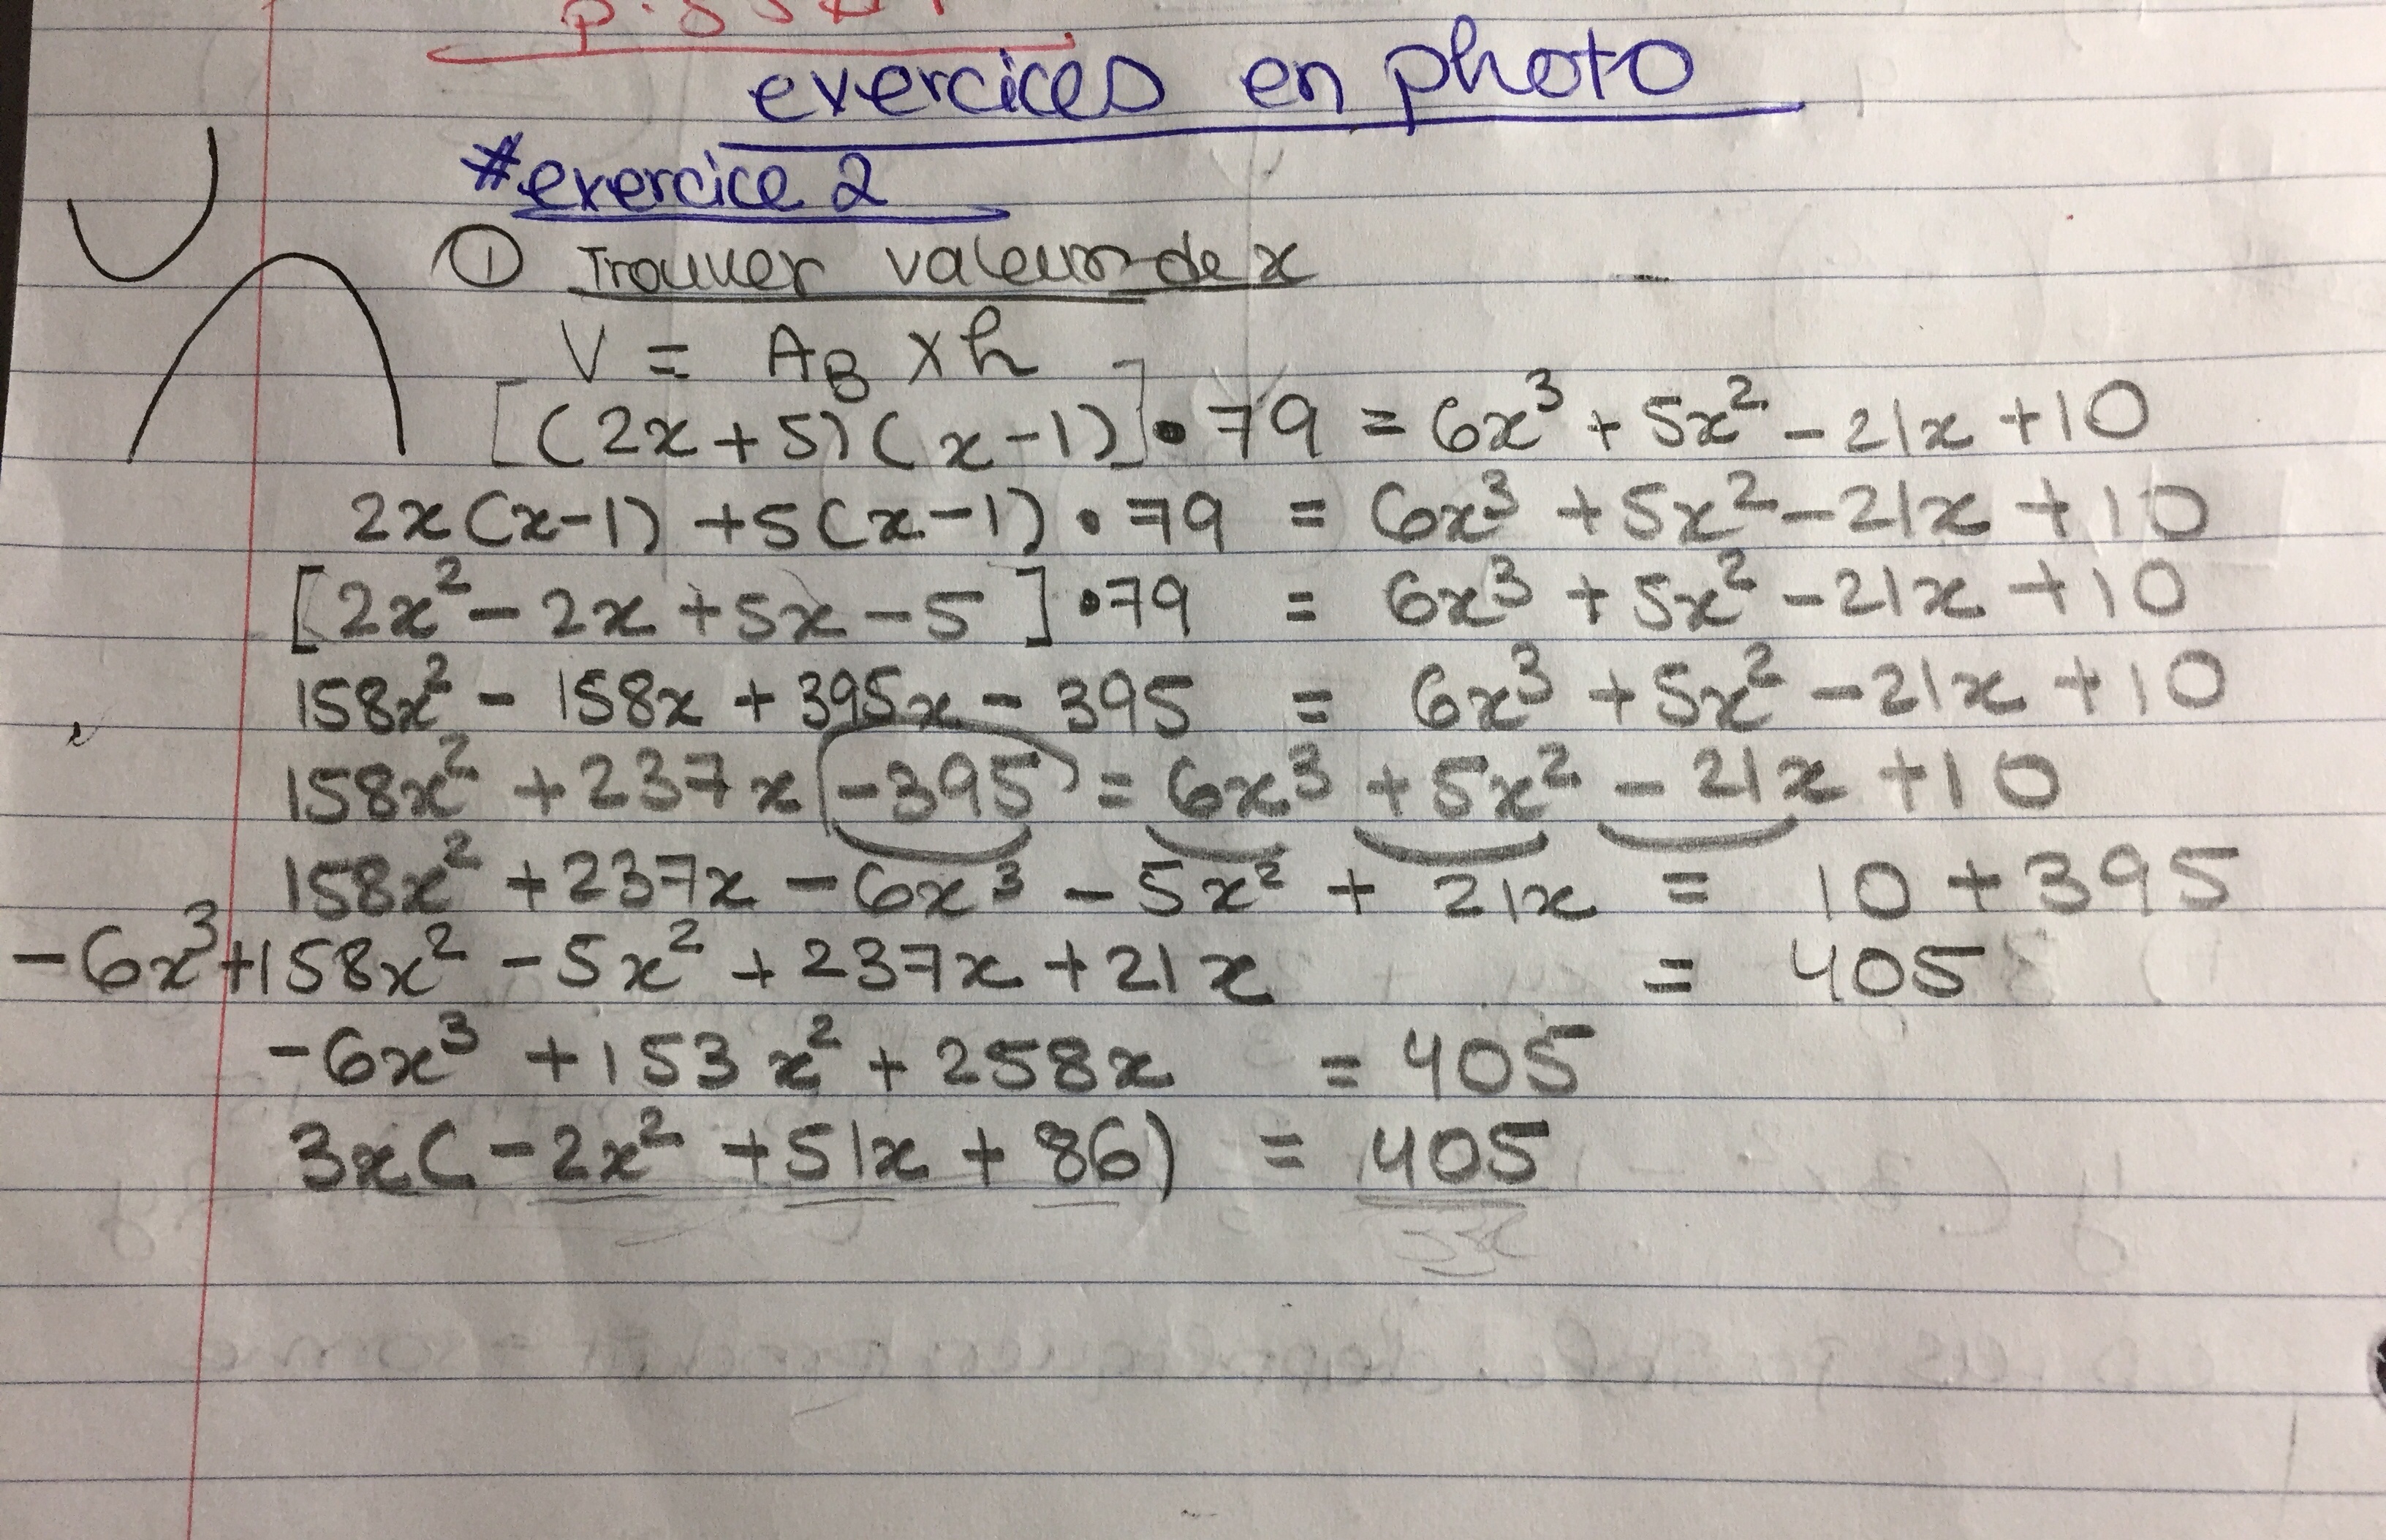 exercices en photo
#exercice 2
① Trouver valeur de x
V = A_B × h
[(2x+5)(x-1)]•79 = 6x³ + 5x² - 21x + 10
2x(x-1) +5(x-1)•79 = 6x³ + 5x² - 21x + 10
[2x² - 2x + 5x - 5]•79 = 6x³ + 5x² - 21x + 10
158x² - 158x + 395x - 395 = 6x³ + 5x² - 21x + 10
158x² + 237x - 395 = 6x³ + 5x² - 21x + 10
158x² + 237x - 6x³ - 5x² + 21x = 10 + 395
-6x³ + 158x² - 5x² + 237x + 21x = 405
-6x³ + 153x² + 258x = 405
3x(-2x² + 51x + 86) = 405